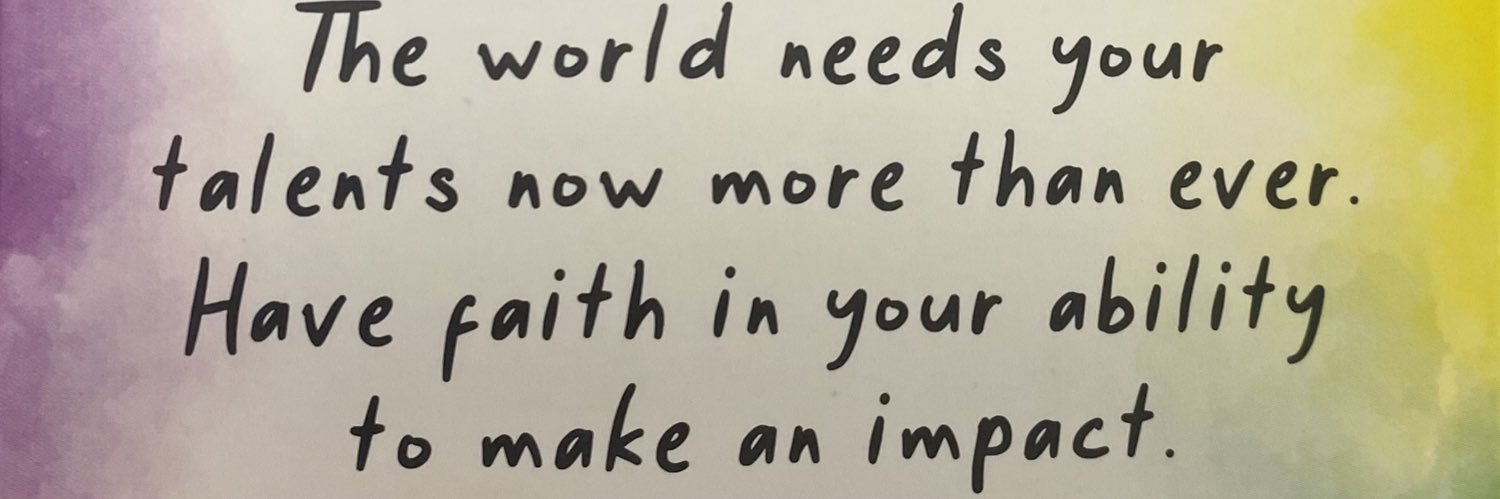 The world needs your
talents now more than ever.
Have faith in your ability
to make an impact.